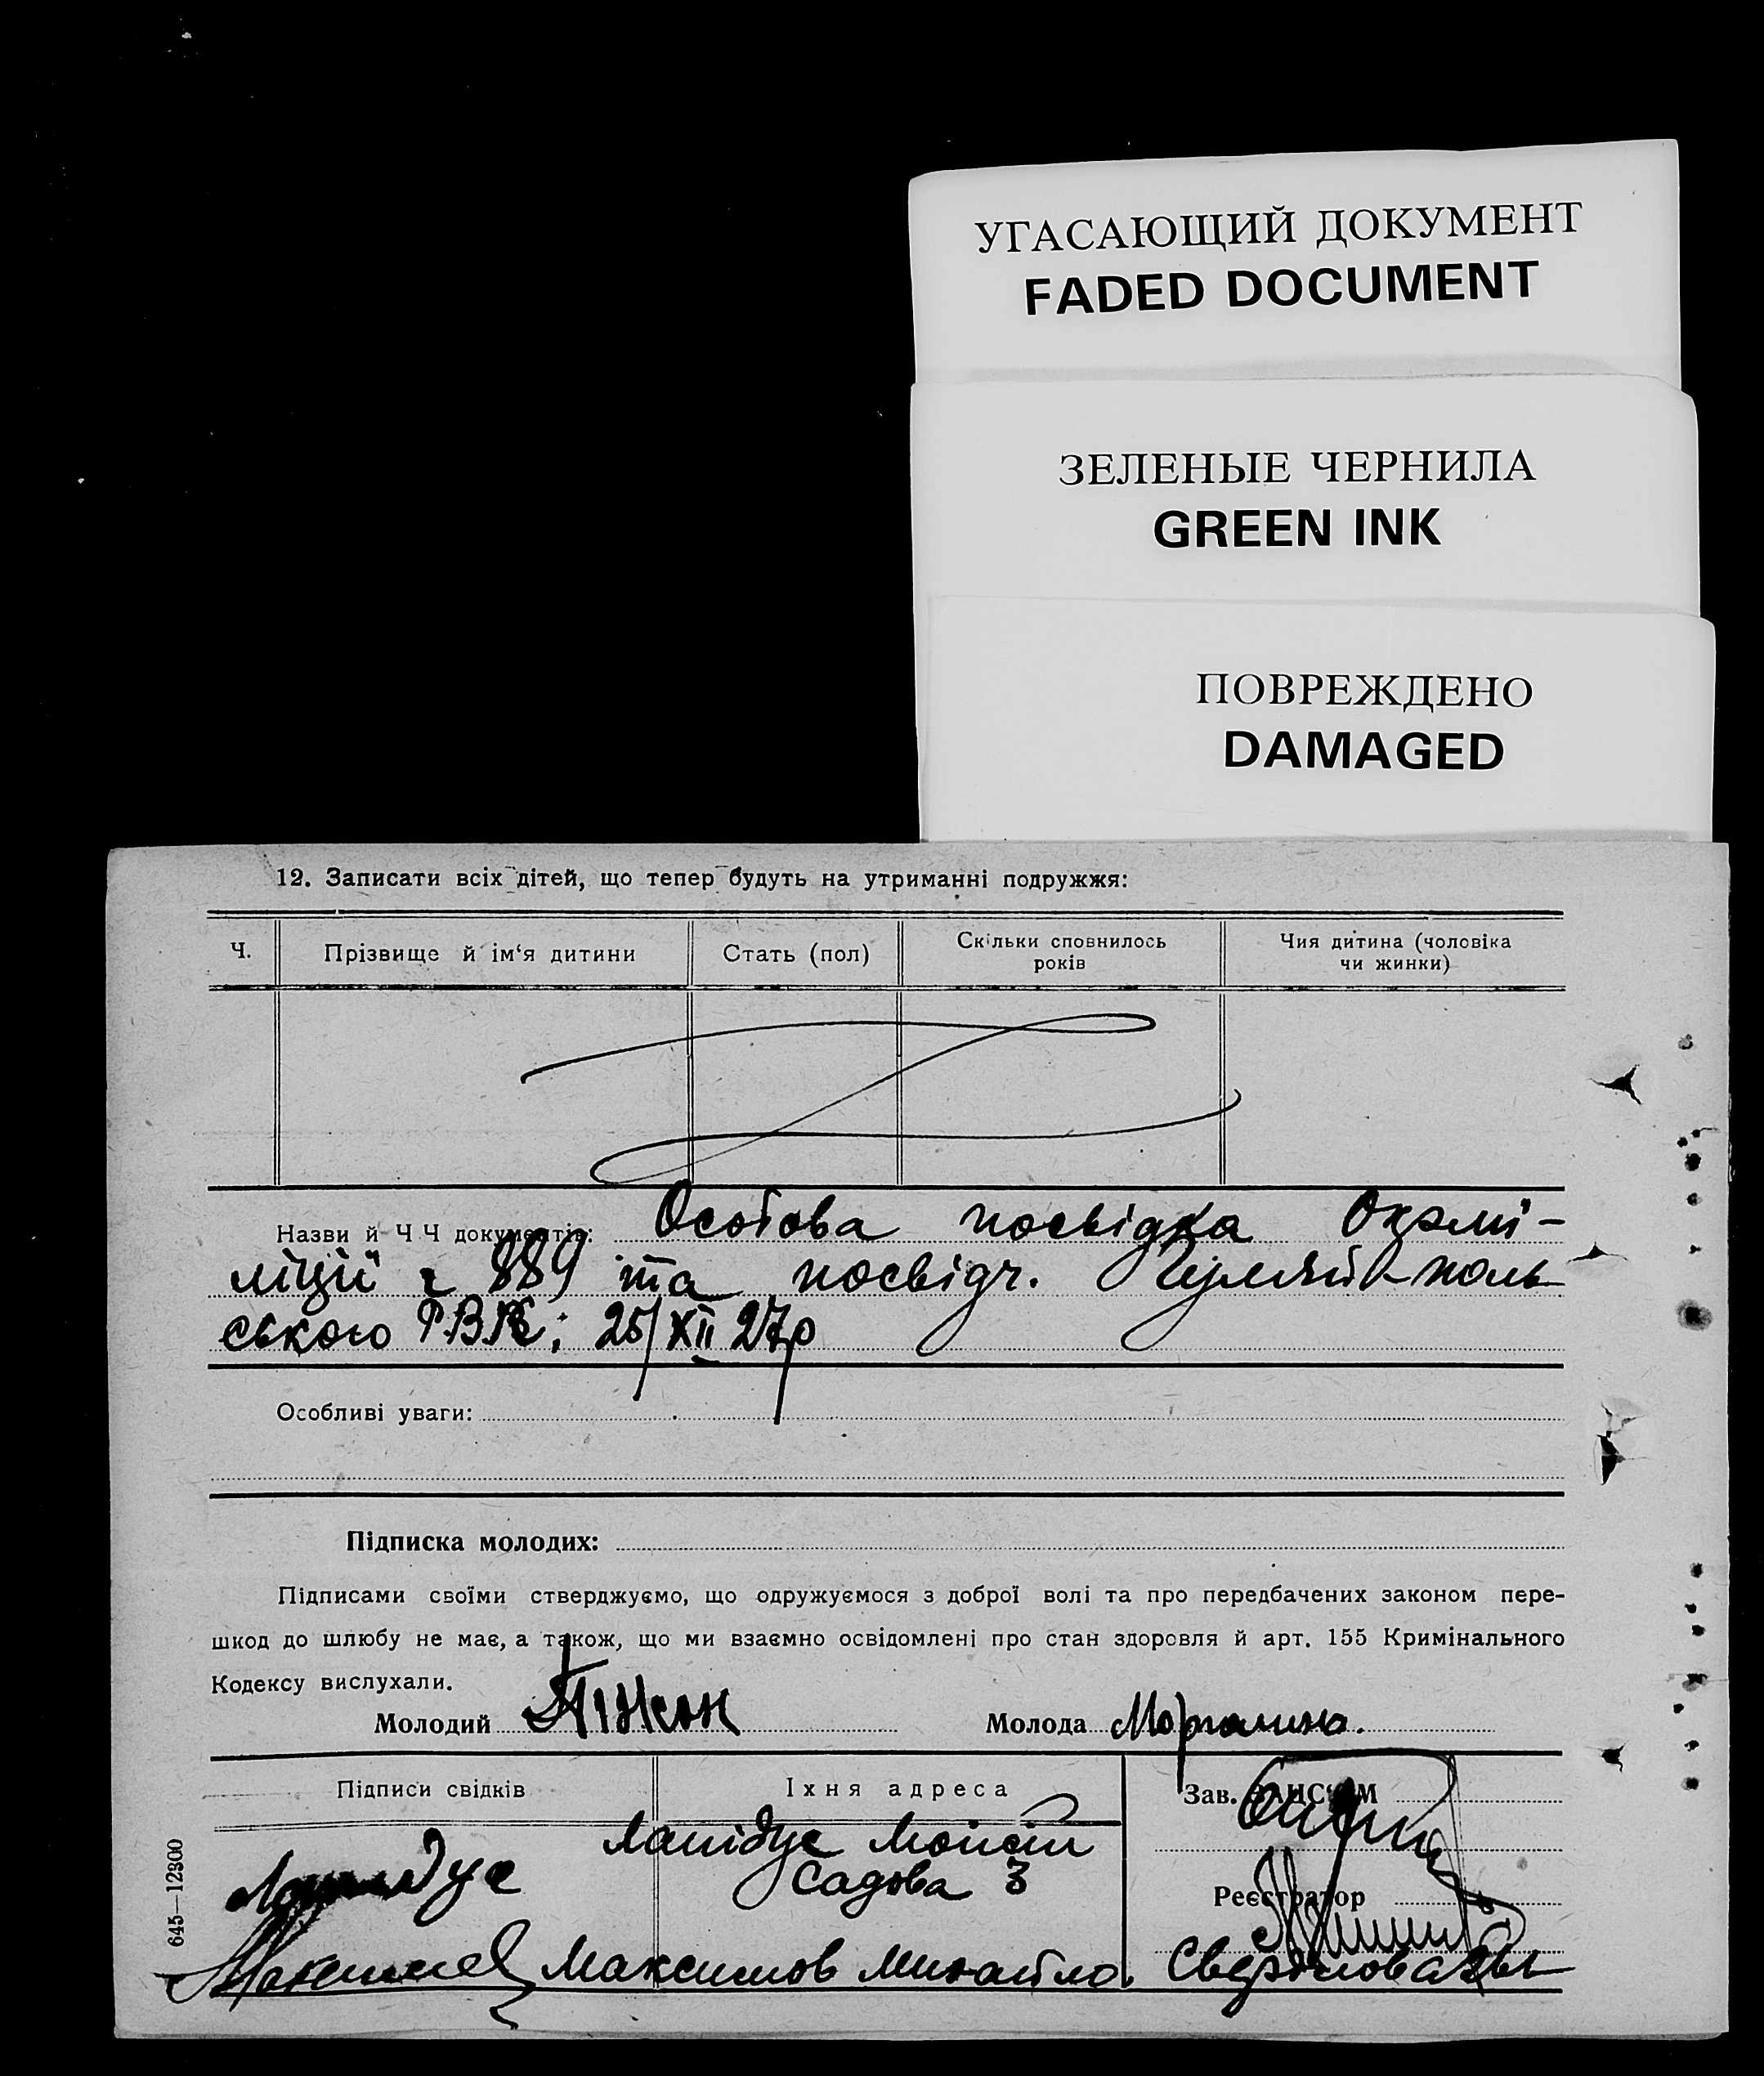 УГАСАЮЩИЙ ДОКУМЕНТ
FADED DOCUMENT
ЗЕЛЕНЫЕ ЧЕРНИЛА
GREEN INK
ПОВРЕЖДЕНО
DAMAGED
12. Записати всіх дітей, що тепер будуть на утриманні подружжя:
Ч. Прізвище й ім‘я дитини Стать (пол) Скільки сповнилось років Чия дитина (чоловіка чи жинки)
Назви й Ч Ч документів: Особова посвідка Окрмі-
ліції ч 889 та посвідч. Гуляй-поль
ського РВК; 25/XII 27р
Особливі уваги:
Підписка молодих:
Підписами своїми стверджуємо, що одружуємося з доброї волі та про передбачених законом пере-
шкод до шлюбу не має, а також, що ми взаємно освідомлені про стан здоровля й арт. 155 Кримінального
Кодексу вислухали.
Молодий Молода
Підписи свідків Їхня адреса Зав. ЗАГС‘ОМ
Лапідус Лапідус Мойсій
Садова 3
Реєстратор
Максимов Максимов Михайло.
645—12300